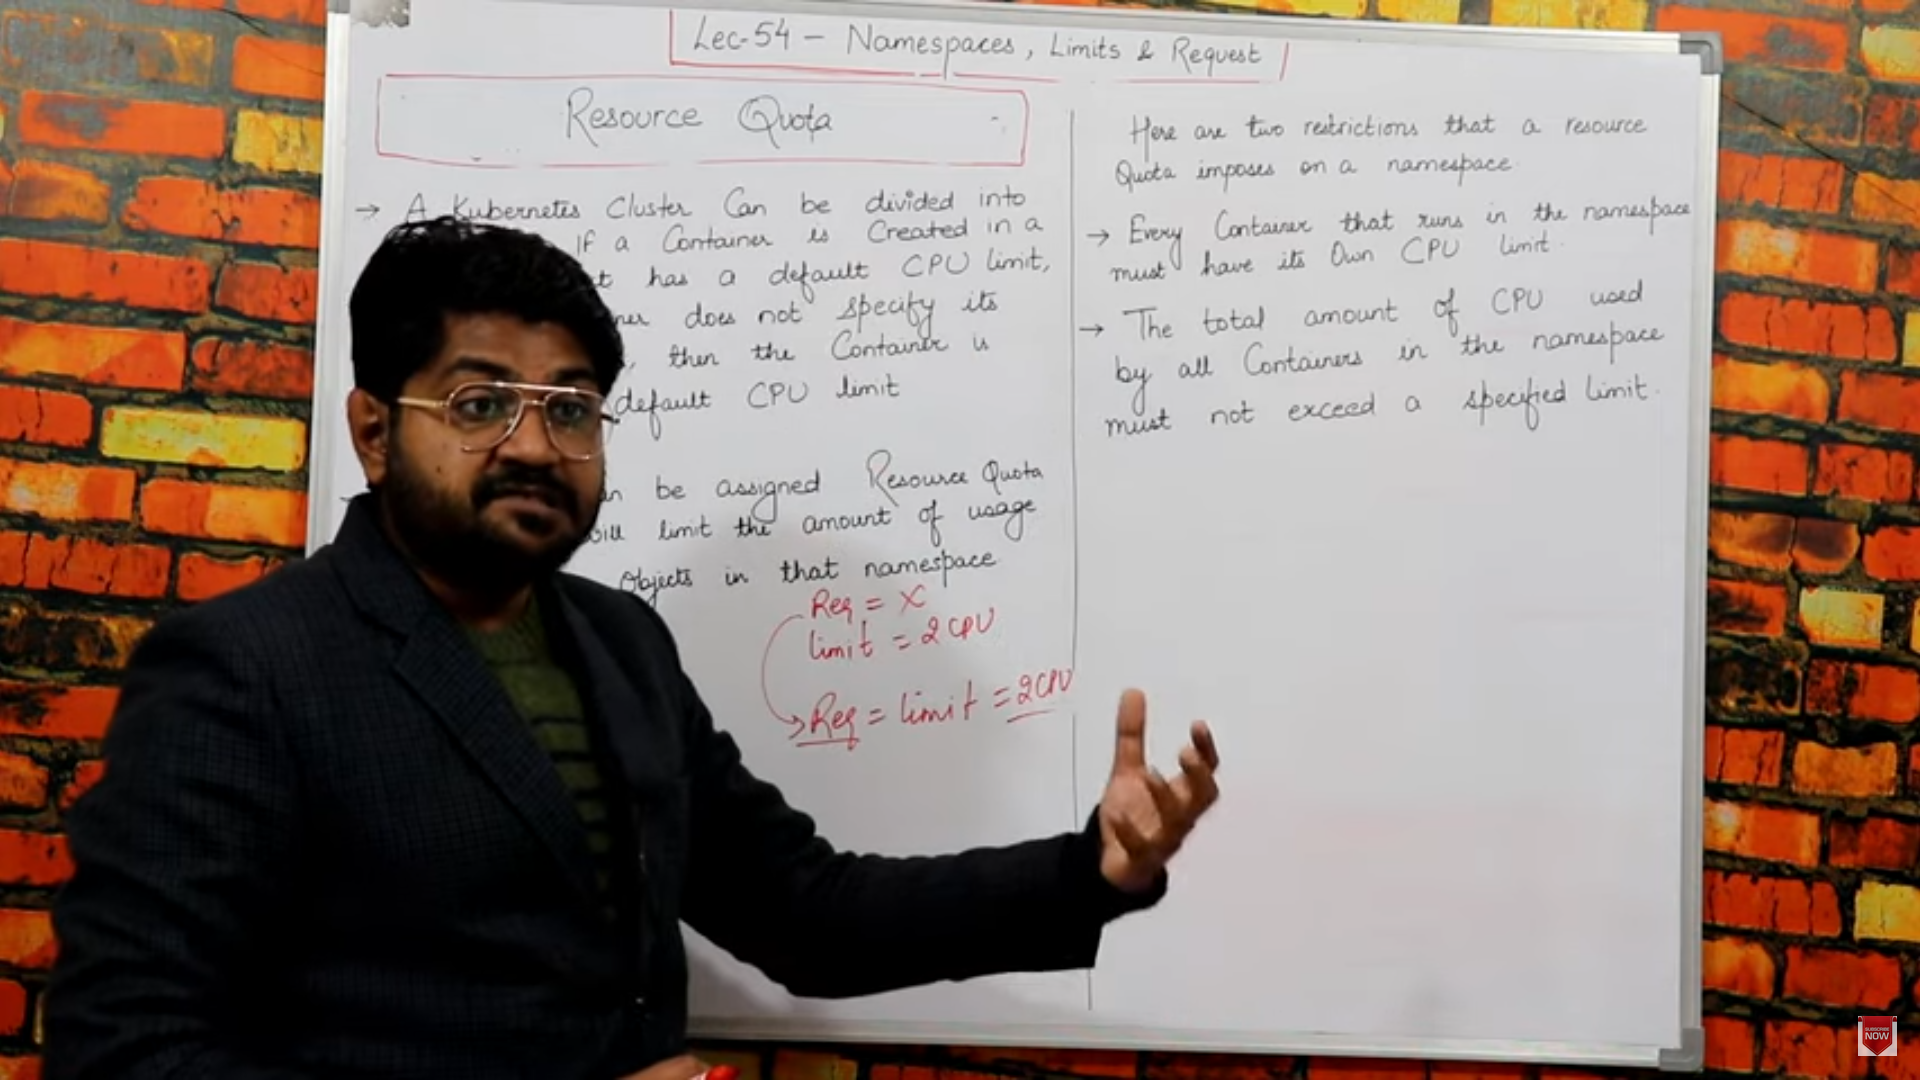 Lec-54 – Namespaces, Limits & Request
Resource Quota
→ A Kubernetes Cluster Can be divided into
If a Container is Created in a
has a default CPU limit,
does not specify its
, then the Container is
default CPU limit
be assigned Resource Quota
limit the amount of usage
Objects in that namespace
Req = X
limit = 2 CPU
Req = limit = 2 CPU
Here are two restrictions that a resource
Quota imposes on a namespace.
→ Every Container that runs in the namespace
must have its Own CPU limit.
→ The total amount of CPU used
by all Containers in the namespace
must not exceed a specified limit.
SUBSCRIBE
NOW